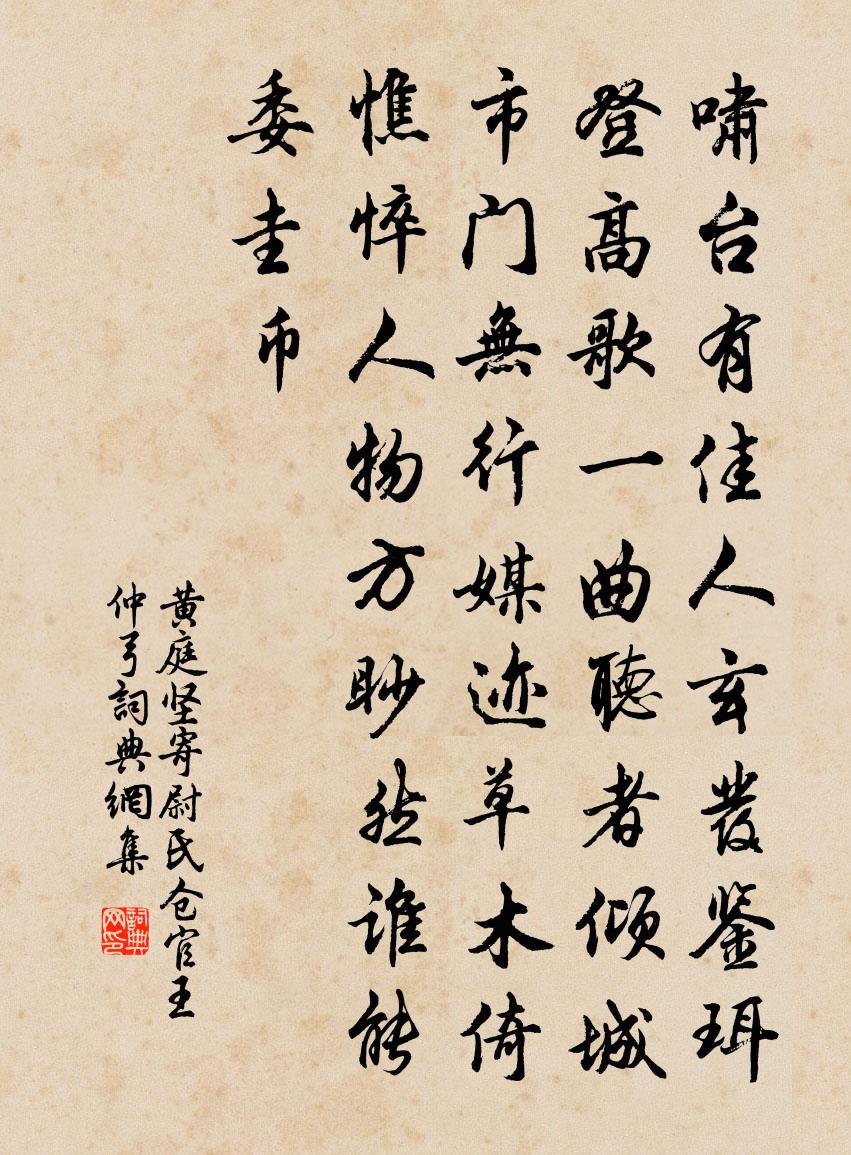 啸台有佳人玄發鉴珥
登高歌一曲聽者倾城
市门無行媒迹草木倚
憔悴人物方眇然谁能
委圭币
黄庭坚寄尉氏仓官王
仲弓詞典網集
詞典网印